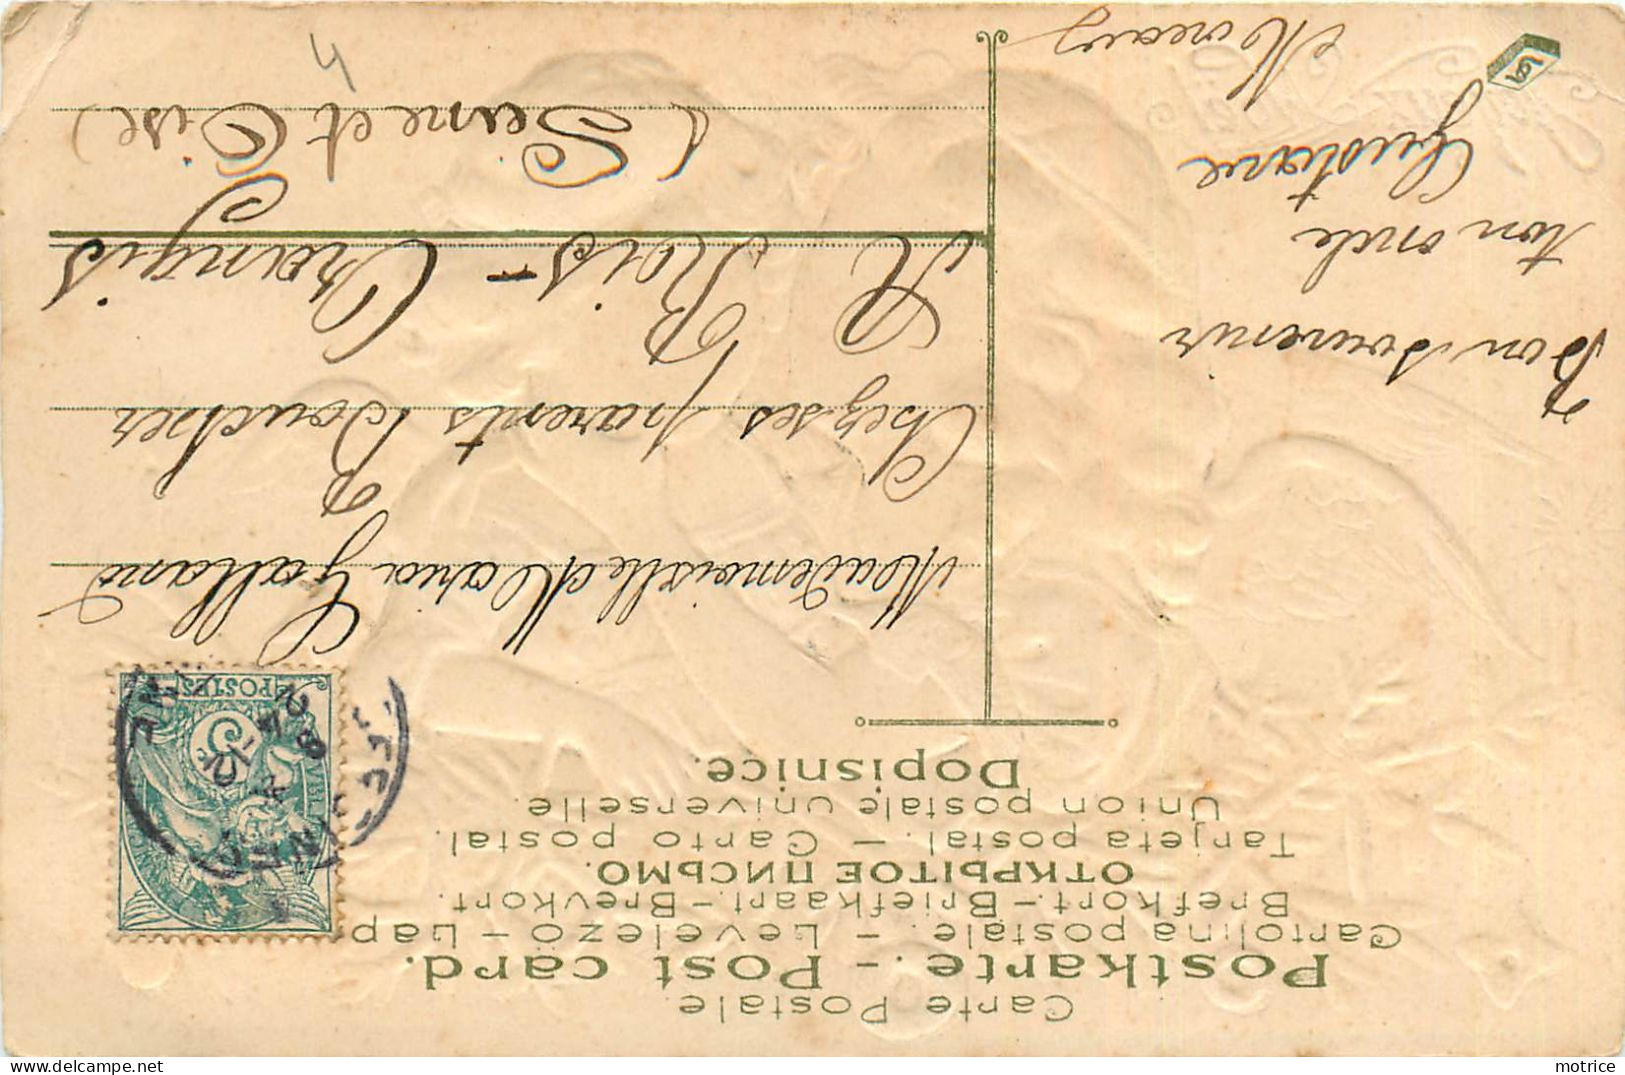 Carte Postale.
Postkarte. – Post card.
Cartolina postale. – Levelező – Lap
Brefkort. – Briefkaart. – Brevkort.
ОТКРЫТОЕ ПИСЬМО.
Tarjeta postal. – Carto postal.
Union postale universelle.
Dopisnice.
POSTES
5c
Bon Souvenir
ton oncle
Gustave
Moreau
Mademoiselle Maria Galland
Chez ses parents Boucher
A Ris – Orangis
(Seine et Oise)
4
motrice